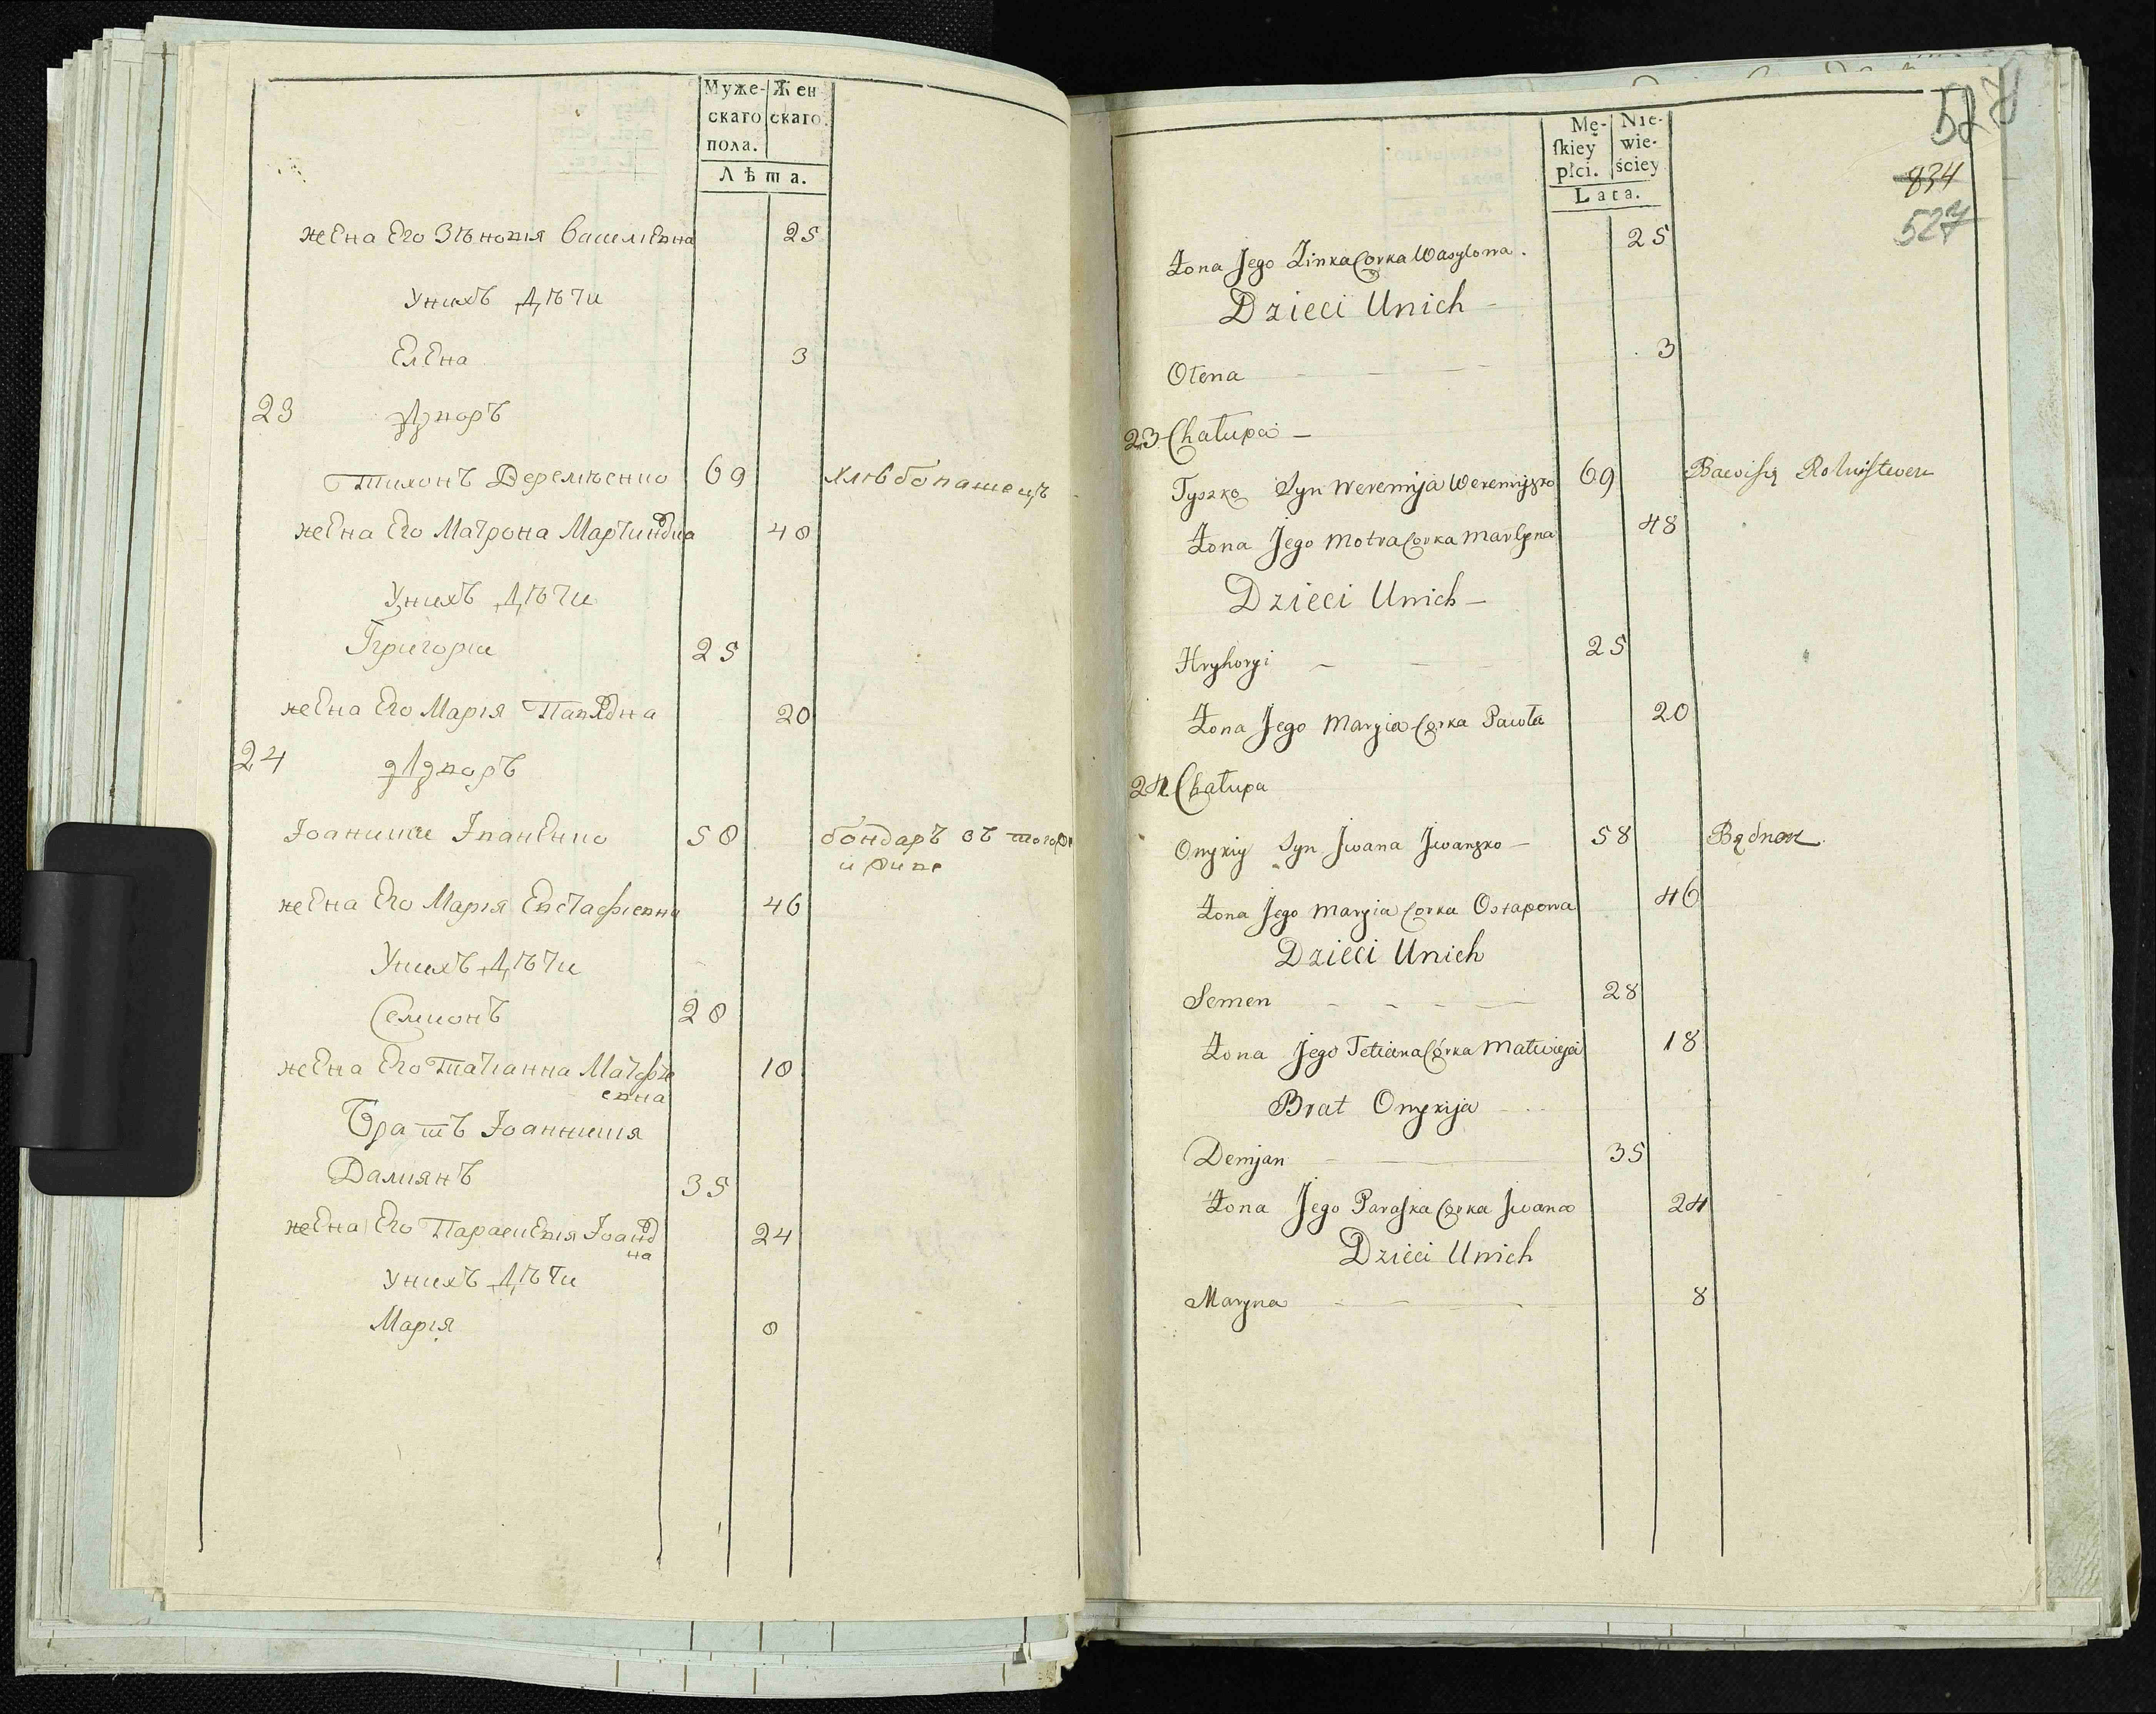 Муже- Жен
скаго скаго.
пола.
Лѣта.
жена его Зѣновія Василіевна 25
У нихъ дѣти
Елена 3
23 дворъ
Тихонъ Веремѣенко 69 хлѣбопашецъ
жена его Матрона Мартиновна 48
У нихъ дѣти
Григорїи 25
жена его Марїя Павловна 20
24 дворъ
Іоаникїи Іваненко 58 бондаръ въ
жена его Марїя Евстафїевна 46
У нихъ дѣти
Семионъ 28
жена его Татїанна Матфѣ
евна 18
Братъ Іоанникїя
Дамиянъ 35
жена его Параскевїя Іоанов
на 24
У нихъ дѣти
Марїя 8
527
834
527
Mę- Nie-
ſkiey wie-
płci. ściey
Lata.
Żona Jego Zinka Corka Wasylowa. 25
Dzieci Unich –
Ołena 3
23 Chałupa –
Tyszko Syn Weremija Weremijzko 69 Bawiſię Rolnistwem
Żona Jego Motra Corka Martyna 48
Dzieci Unich –
Hryhoryi 25
Żona Jego Maryia Corka Pawła 20
24 Chałupa
Onykiy Syn Jwana Jwanzko – 58 Będnarz
Żona Jego Maryia Corka Ostapowa 46
Dzieci Unich
Semen 28
Żona Jego Tetiana Córka Matwieja 18
Brat Onykija
Demjan 35
Żona Jego Paraſka Corka Jwana 24
Dzieci Unich
Maryna 8